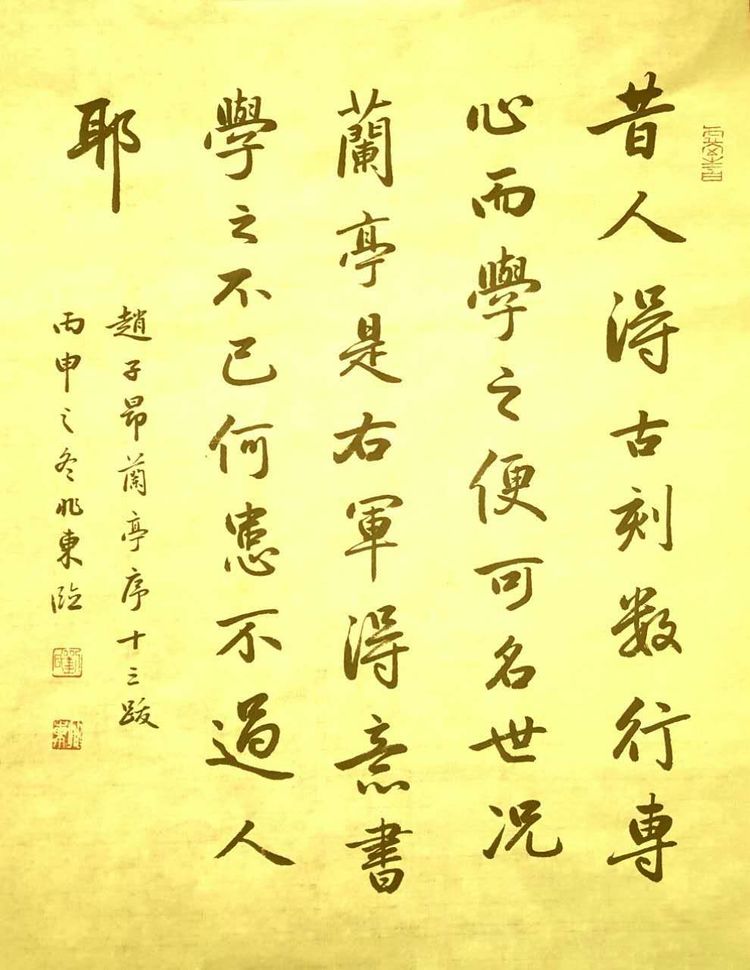 昔人得古刻数行專
心而學之便可名世况
蘭亭是右軍得意書
學之不已何患不過人
耶
趙子昂蘭亭序十三跋
丙申之冬兆東臨